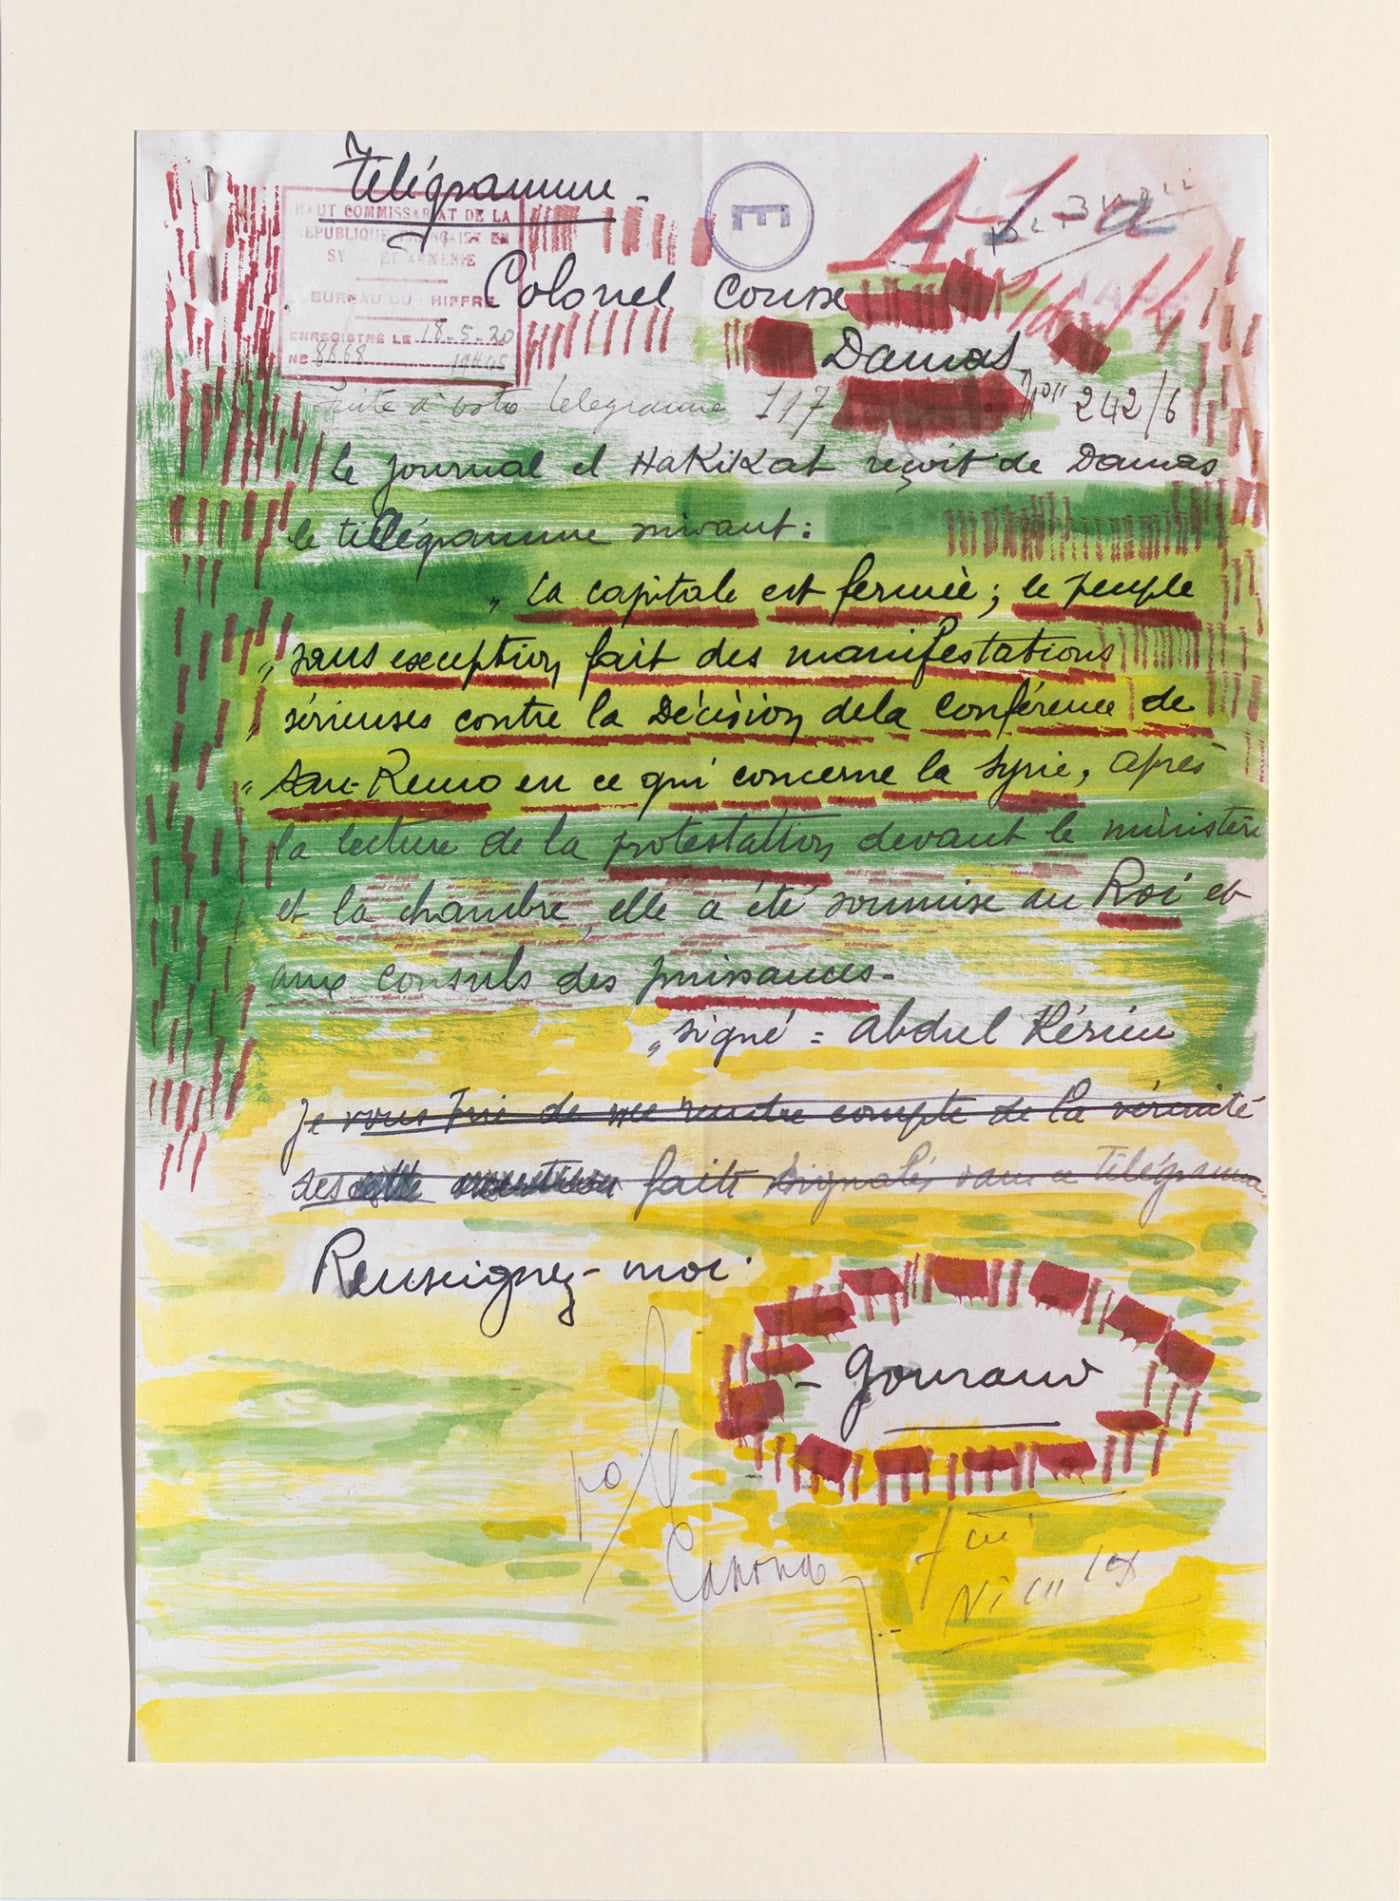 Télégramme -
E
A-1-a
HAUT COMMISSARIAT DE LA
RÉPUBLIQUE FRANÇAISE EN
SYRIE ET ARMÉNIE
BUREAU DU CHIFFRE
ENREGISTRÉ LE 18-5-20
No 8668 10H45
Colonel Cousse
Damas
Suite à votre télégramme 117 242/6
le journal el HaKiKat reçoit de Damas
le télégramme suivant:
" La capitale est fermée; le peuple
" sans exception fait des manifestations
" sérieuses contre la Décision de la conférence de
" San-Remo en ce qui concerne la Syrie, après
la lecture de la protestation devant le ministère
et la chambre, elle a été soumise au Roi et
aux consuls des puissances-
" signé = Abdul Kérim
Je vous prie de me rendre compte de la véracité
des faits signalés dans ce télégramme
Renseignez-moi.
- Gouraud
po
Canonge